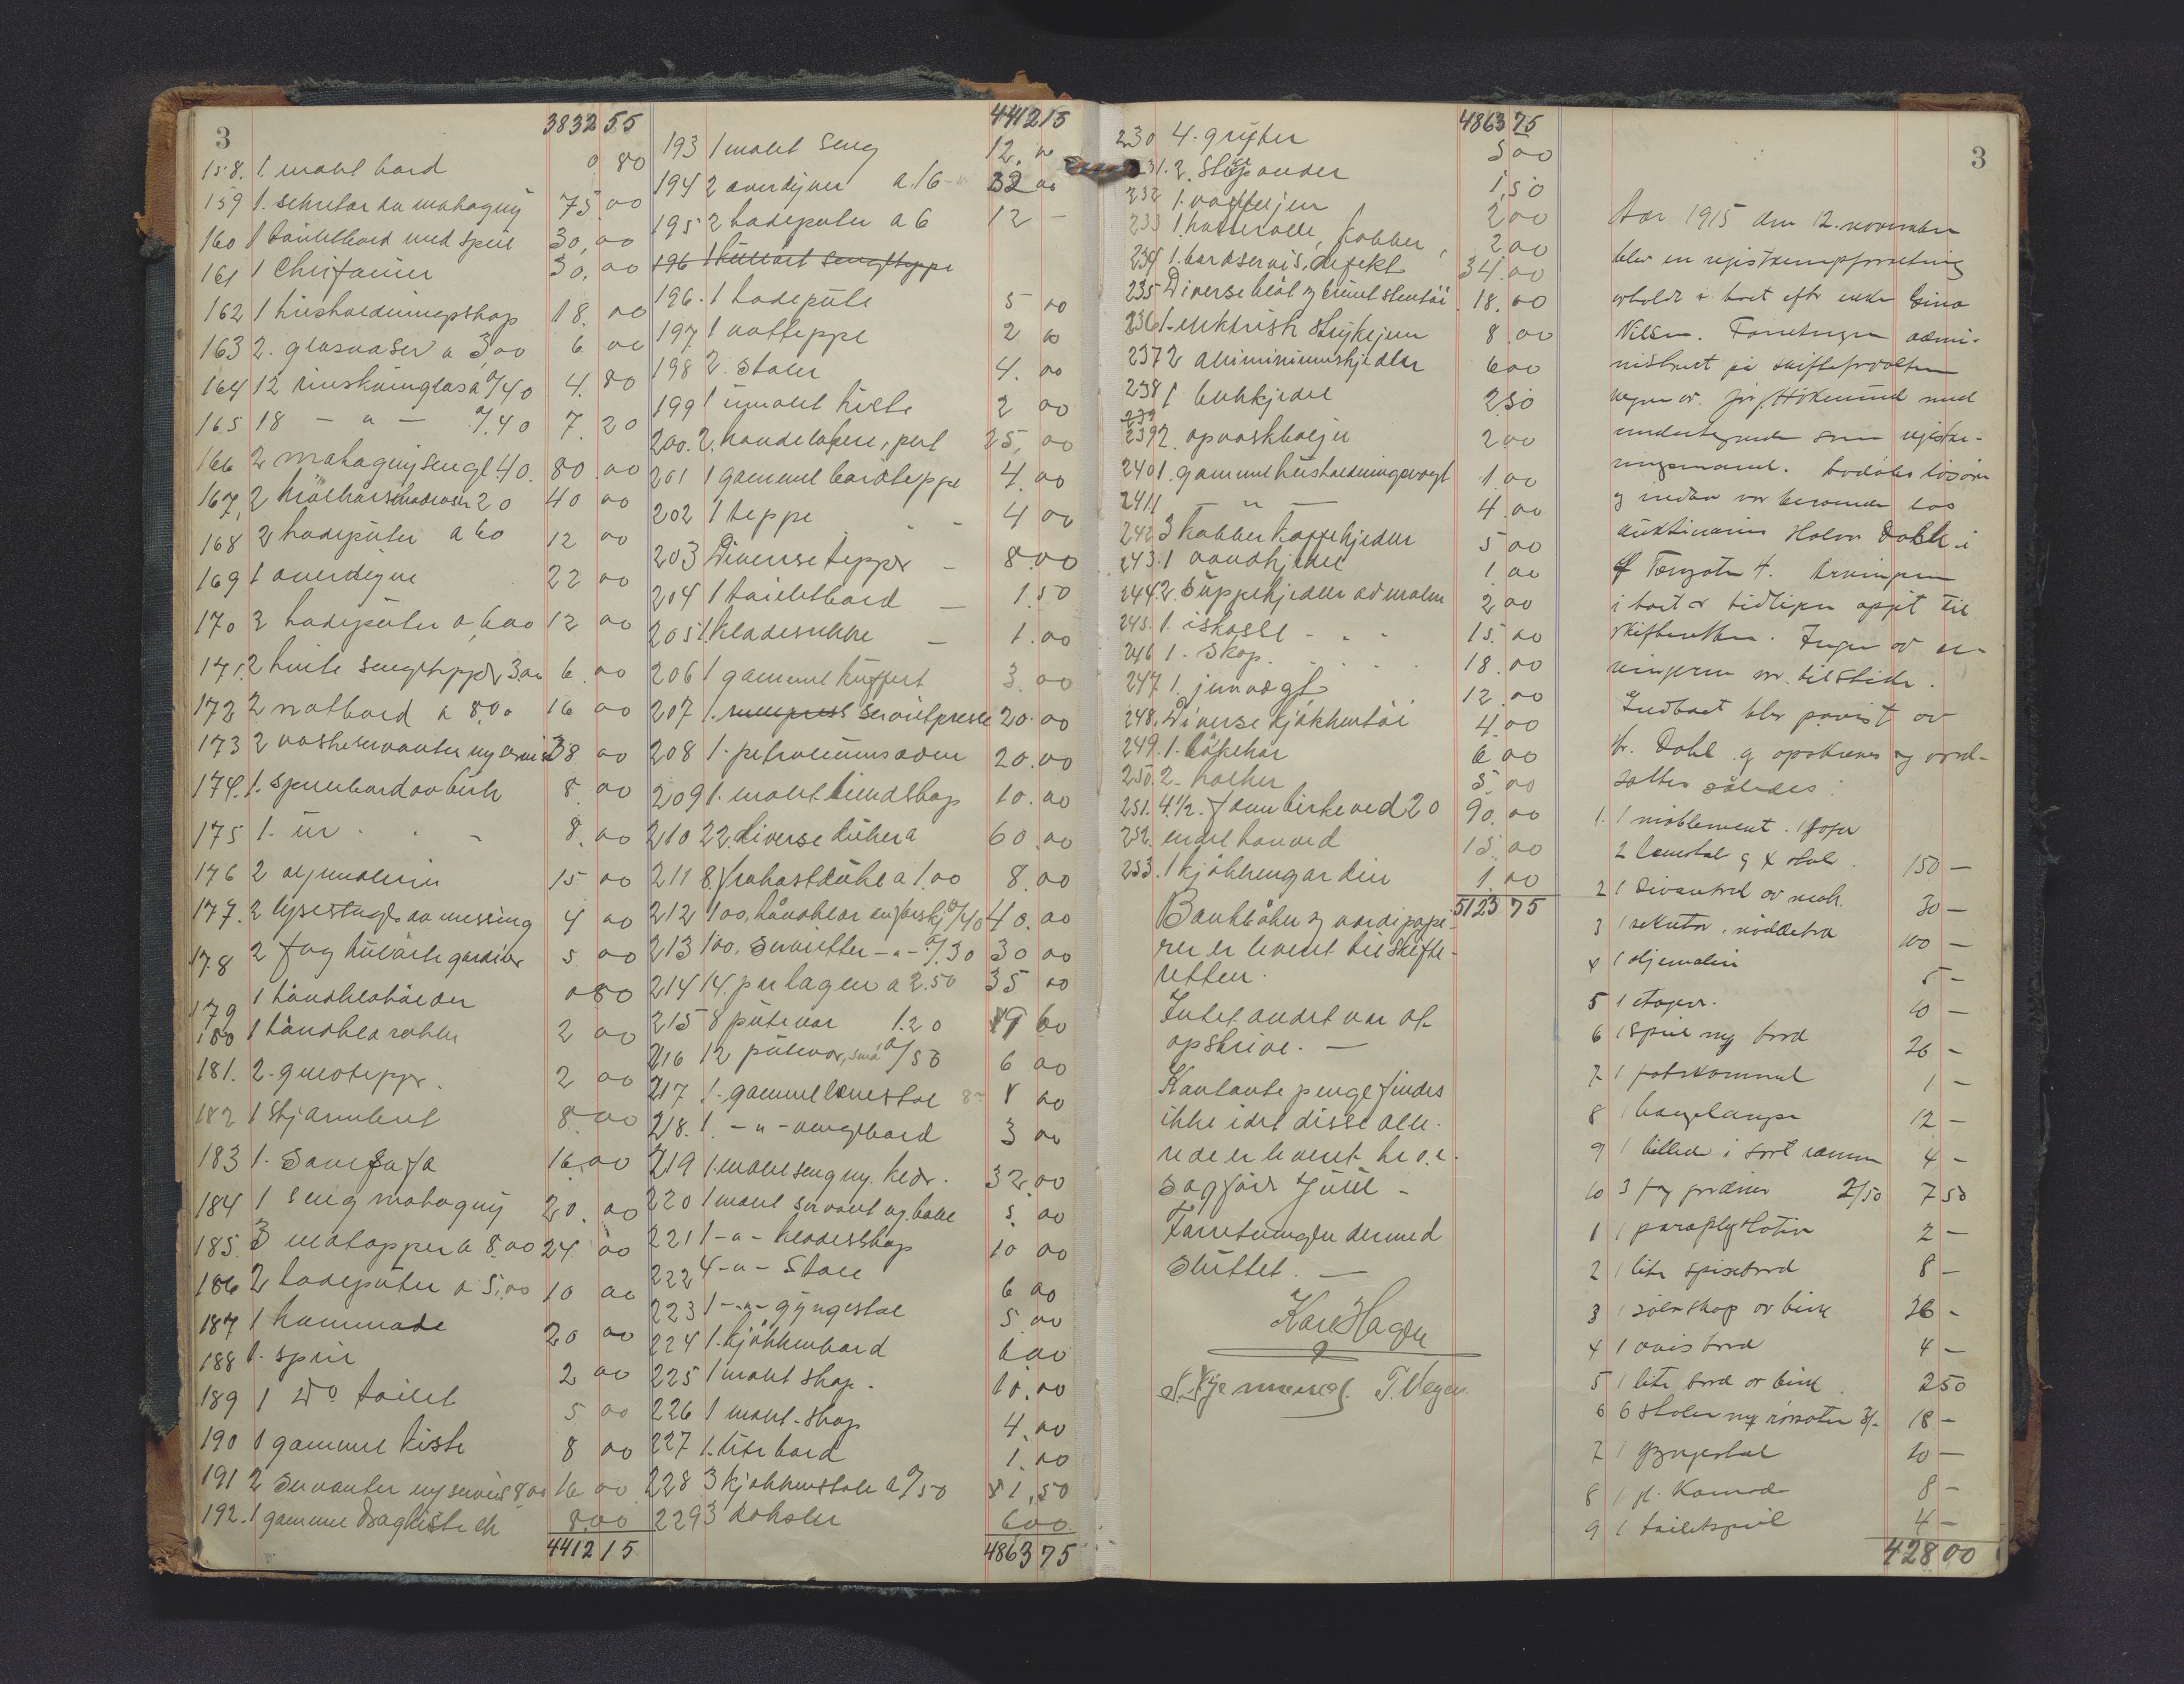 3
3832 55
158. 1. malt bord 0 80
159 1. sekretær av mahogny 75.00
160 1 toiletbord med speil 30,00
161 1 Chiffonier 30,00
162 1 husholdningsskap 18.00
163 2. glasvaser a 3,00 6 00
164 12 rinskvinglas a 0/40 4.80
165 18 — " — 0/40 7.20
166 2 mahognysenge 40. 80.00
167, 2 krølhaarsmadrasser 20 40 00
168 2 hodeputer a 6 12 00
169 1 overdyne 22 00
170 2 hodeputer a 6,00 12 00
171. 2 hvite sengetepper 3,00 6.00
172 2 natbord a 8,00 16 00
173 2 vaskeservanter 38 00
174. 1. spillebord av birk 8.00
175 1. ur . . - 8.00
176 2 oljemalerier 15 00
177. 2 lysestager av messing 4 00
178 2 fag gardiner 5 00
179 1 haandklæholder 0 80
180 1 2 00
181. 2. gulvtepper. 2 00
182 1 skjermbret 8.00
183 1. Sovesofa 16.00
184 1 seng mahogny 20.00
185. 3 matopper a 8.00 24 00
186 2 hodeputer a 5,00 10 00
187 1 kommode 20 00
188 1. speil 2 00
189 1 Do toilet 5 00
190 1 gammel kiste 8 00
191 2 servanter 8,00 16 00
192. 1 gammel dragkiste ek 8.00
4412 15
4412 15
193 1 malt seng 12.00
194 2 overdyner a. 16- 32 00
195 2 hodeputer a 6 12 —
196 1 kulørt sengeteppe
196. 1 hodepute 5 00
197 1 vatteppe 2 00
198 2. stoler 4.00
199 1 umalt kiste 2 00
200. 2. 25,00
201 1 gammel bordteppe 4.00
202 1 teppe 4 00
203 Diverse tepper - 8.00
204 1 toiletbord — 1.50
205 1 — 1.00
206 1 gammel kuffert 3.00
207 1. servietpresse 20.00
208 1. petroleumsovn 20.00
209 1. malt lindskap 10.00
210 22. diverse duker a 60.00
211 8. frokostduke a 1.00 8.00
212 100, håndklær 0/40 40.00
213 100. Servietter - " - 0/.30 30 00
214 14. par lagen a 2.50 35 00
215 8 putevar 1.20 9 60
216 12 putevar, små 0/50 6 00
217 1. gammel lænestol 8 00
218. 1. - " - 3 00
219 1. malt seng 32.00
220 1 malt servant 5.00
221 1 - " - klædesskap 10 00
222 4 - " - Stole 6 00
223 1 - " - gyngestol 5.00
224 1. kjøkkenbord 6.00
225 1 malt skap. 10.00
226 1 malt. skap 4.00
227 1. lite bord 1.00
228 3 kjøkkenstole a 0/50 1,50
229 3 kokoler 6 00
4863 75
3
4863 75
230 4. gryter 5 00
231. 2. stekpander 1,50
232 1. vaffeljern 2 00
233 1. kasserolle, kobber, 2 00
234 1. bordservis, defekt 34.00
235 Diverse blåt og brunt stentøi 18.00
236 1. elektrisk strykejern 8.00
237 2 aluminiumskjedler 6 00
238 1 2 50
239
239 2. opvaskbaljer 2.00
240 1. gammel husholdningsvegt 1.00
241 1 — " — 4.00
242 3 kobber kaffekjedler 5 00
243. 1 vandkjedel 1.00
244. 2. suppekjedler av malm 2 00
245. 1. iskasse - . - 15.00
246 1. skap. . . . 18.00
247 1. jernvægt 12.00
248. Diverse kjøkkentøi 4.00
249. 1. 6 00
250. 2. 5.00
251. 4 1/2. favn birkeved 20 90.00
252. endel 15.00
253. 1 kjøkkengardin 1.00
5123 75
Bankbøker og værdipape-
rer er levert til skifte-
retten.
Intet andet var at
opskrive. —
Kontante penge findes
ikke idet disse alle-
rede er levert h.r.
sagfører Juul -
Forretningen dermed
sluttet. —
Kare Hagen
T. Vegen
Aar 1915 den 12. november
blev en registreringsforretning
avholdt i boet efter enke Gina
Nilsen. Forretningen admi-
nistrert på skifteforvalterens
vegne av
undertegnede som registre-
ringsmand. Avdødes løsøre
og indbo var beroende hos
auktionarius Halvor Dahl i
Torvgaten 4. Arvingene
i boet er tidligere opgit til
skifteretten. Ingen av ar-
vingerne var tilstede.
Indboet blev påvist av
hr. Dahl og opskreves og værd-
sattes således:
1. 1 møblement. 1 sofa
2 lænestole og 4 stole. 150 —
2 1 Divanbord av mah. 30 —
3 1 sekretær. nøddetræ 100 —
4 1 oljemaleri 5 —
5 1 etager. 10 —
6 1 speil med bord 26 —
7 1 1 —
8 1 hængelampe 12 —
9 1 billede i sort ramme 4 —
10 3 fag gardiner 2/50 7 50
1 1 paraplystativ 2 —
2 1 lite spisebord 8 —
3 1 sølvskap av birk 26 —
4 1 avisbord 4 —
5 1 lite bord av birk. 2 50
6 6 stoler 3/- 18 —
7 1 gyngestol 10 —
8 1 gl. Komode 8 —
9 1 toiletspeil 4 —
428 00